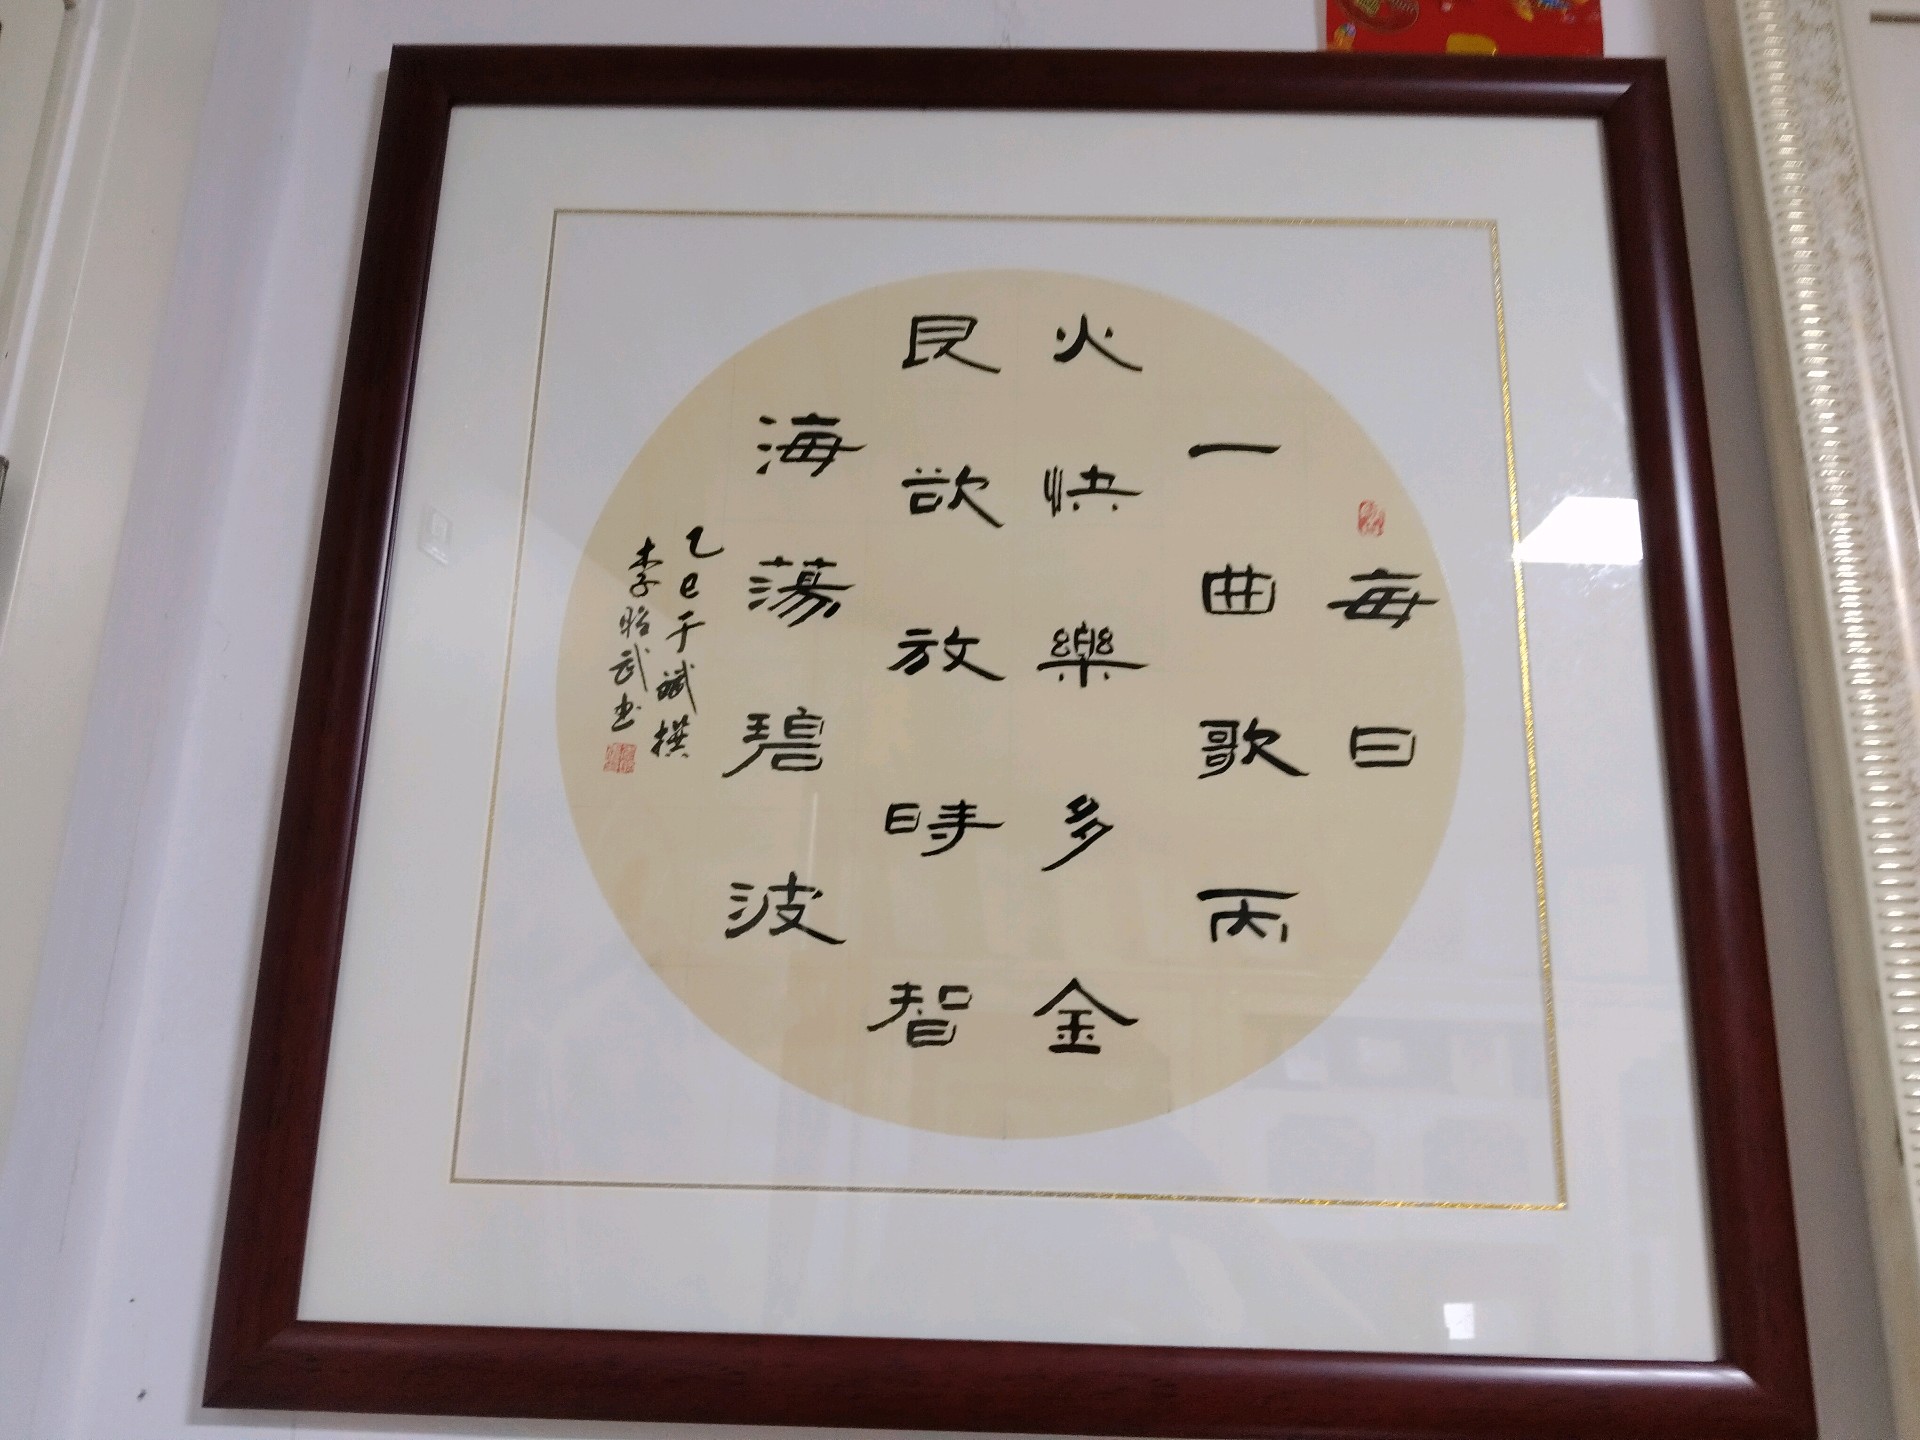 每日
一曲歌丙
火快樂多金
艮欲放時智
海蕩碧波
乙巳于斌撰
李昭武书